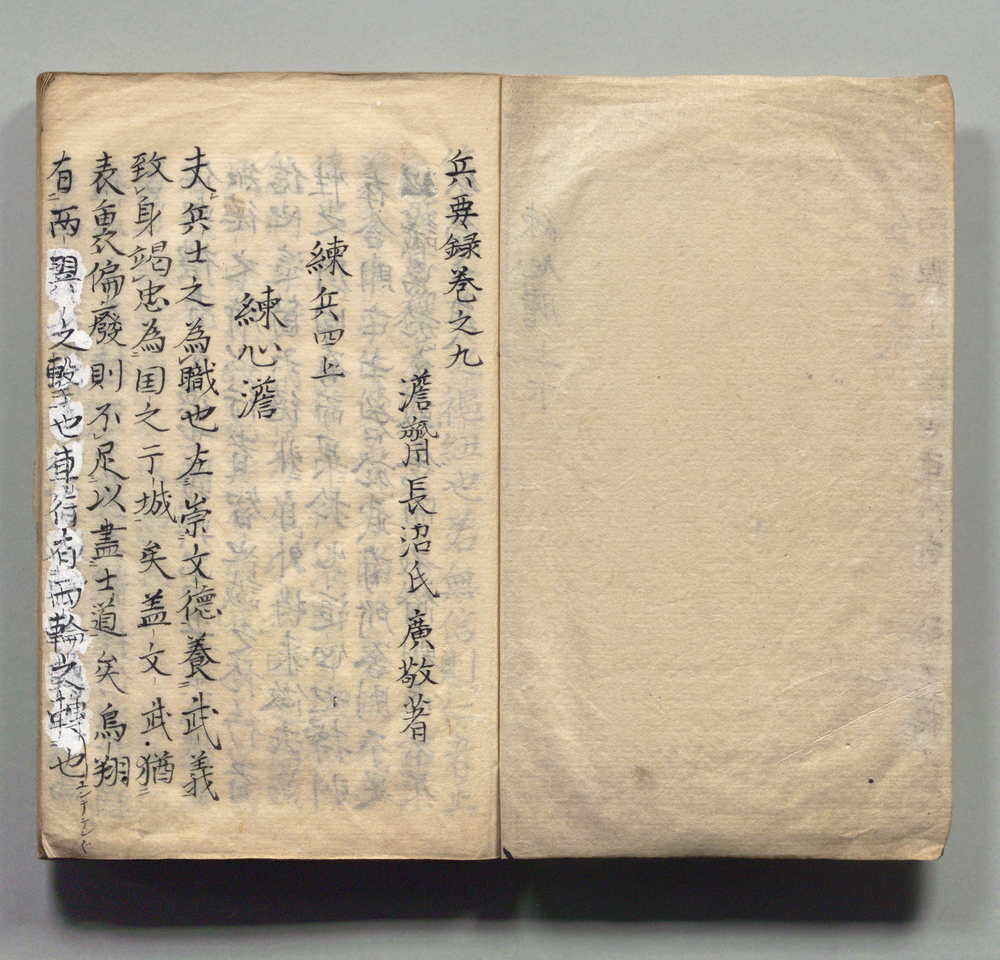 兵要録巻之九
澹齋長沼氏廣敬著
練兵四上
練心澹
夫兵士之為職也在崇文德養武義
致身竭忠為国之干城矣盖文武猶
表裏衣偏廢則不足以盡士道矣鳥翔
有两翼之擊也車行有两輪之轉也